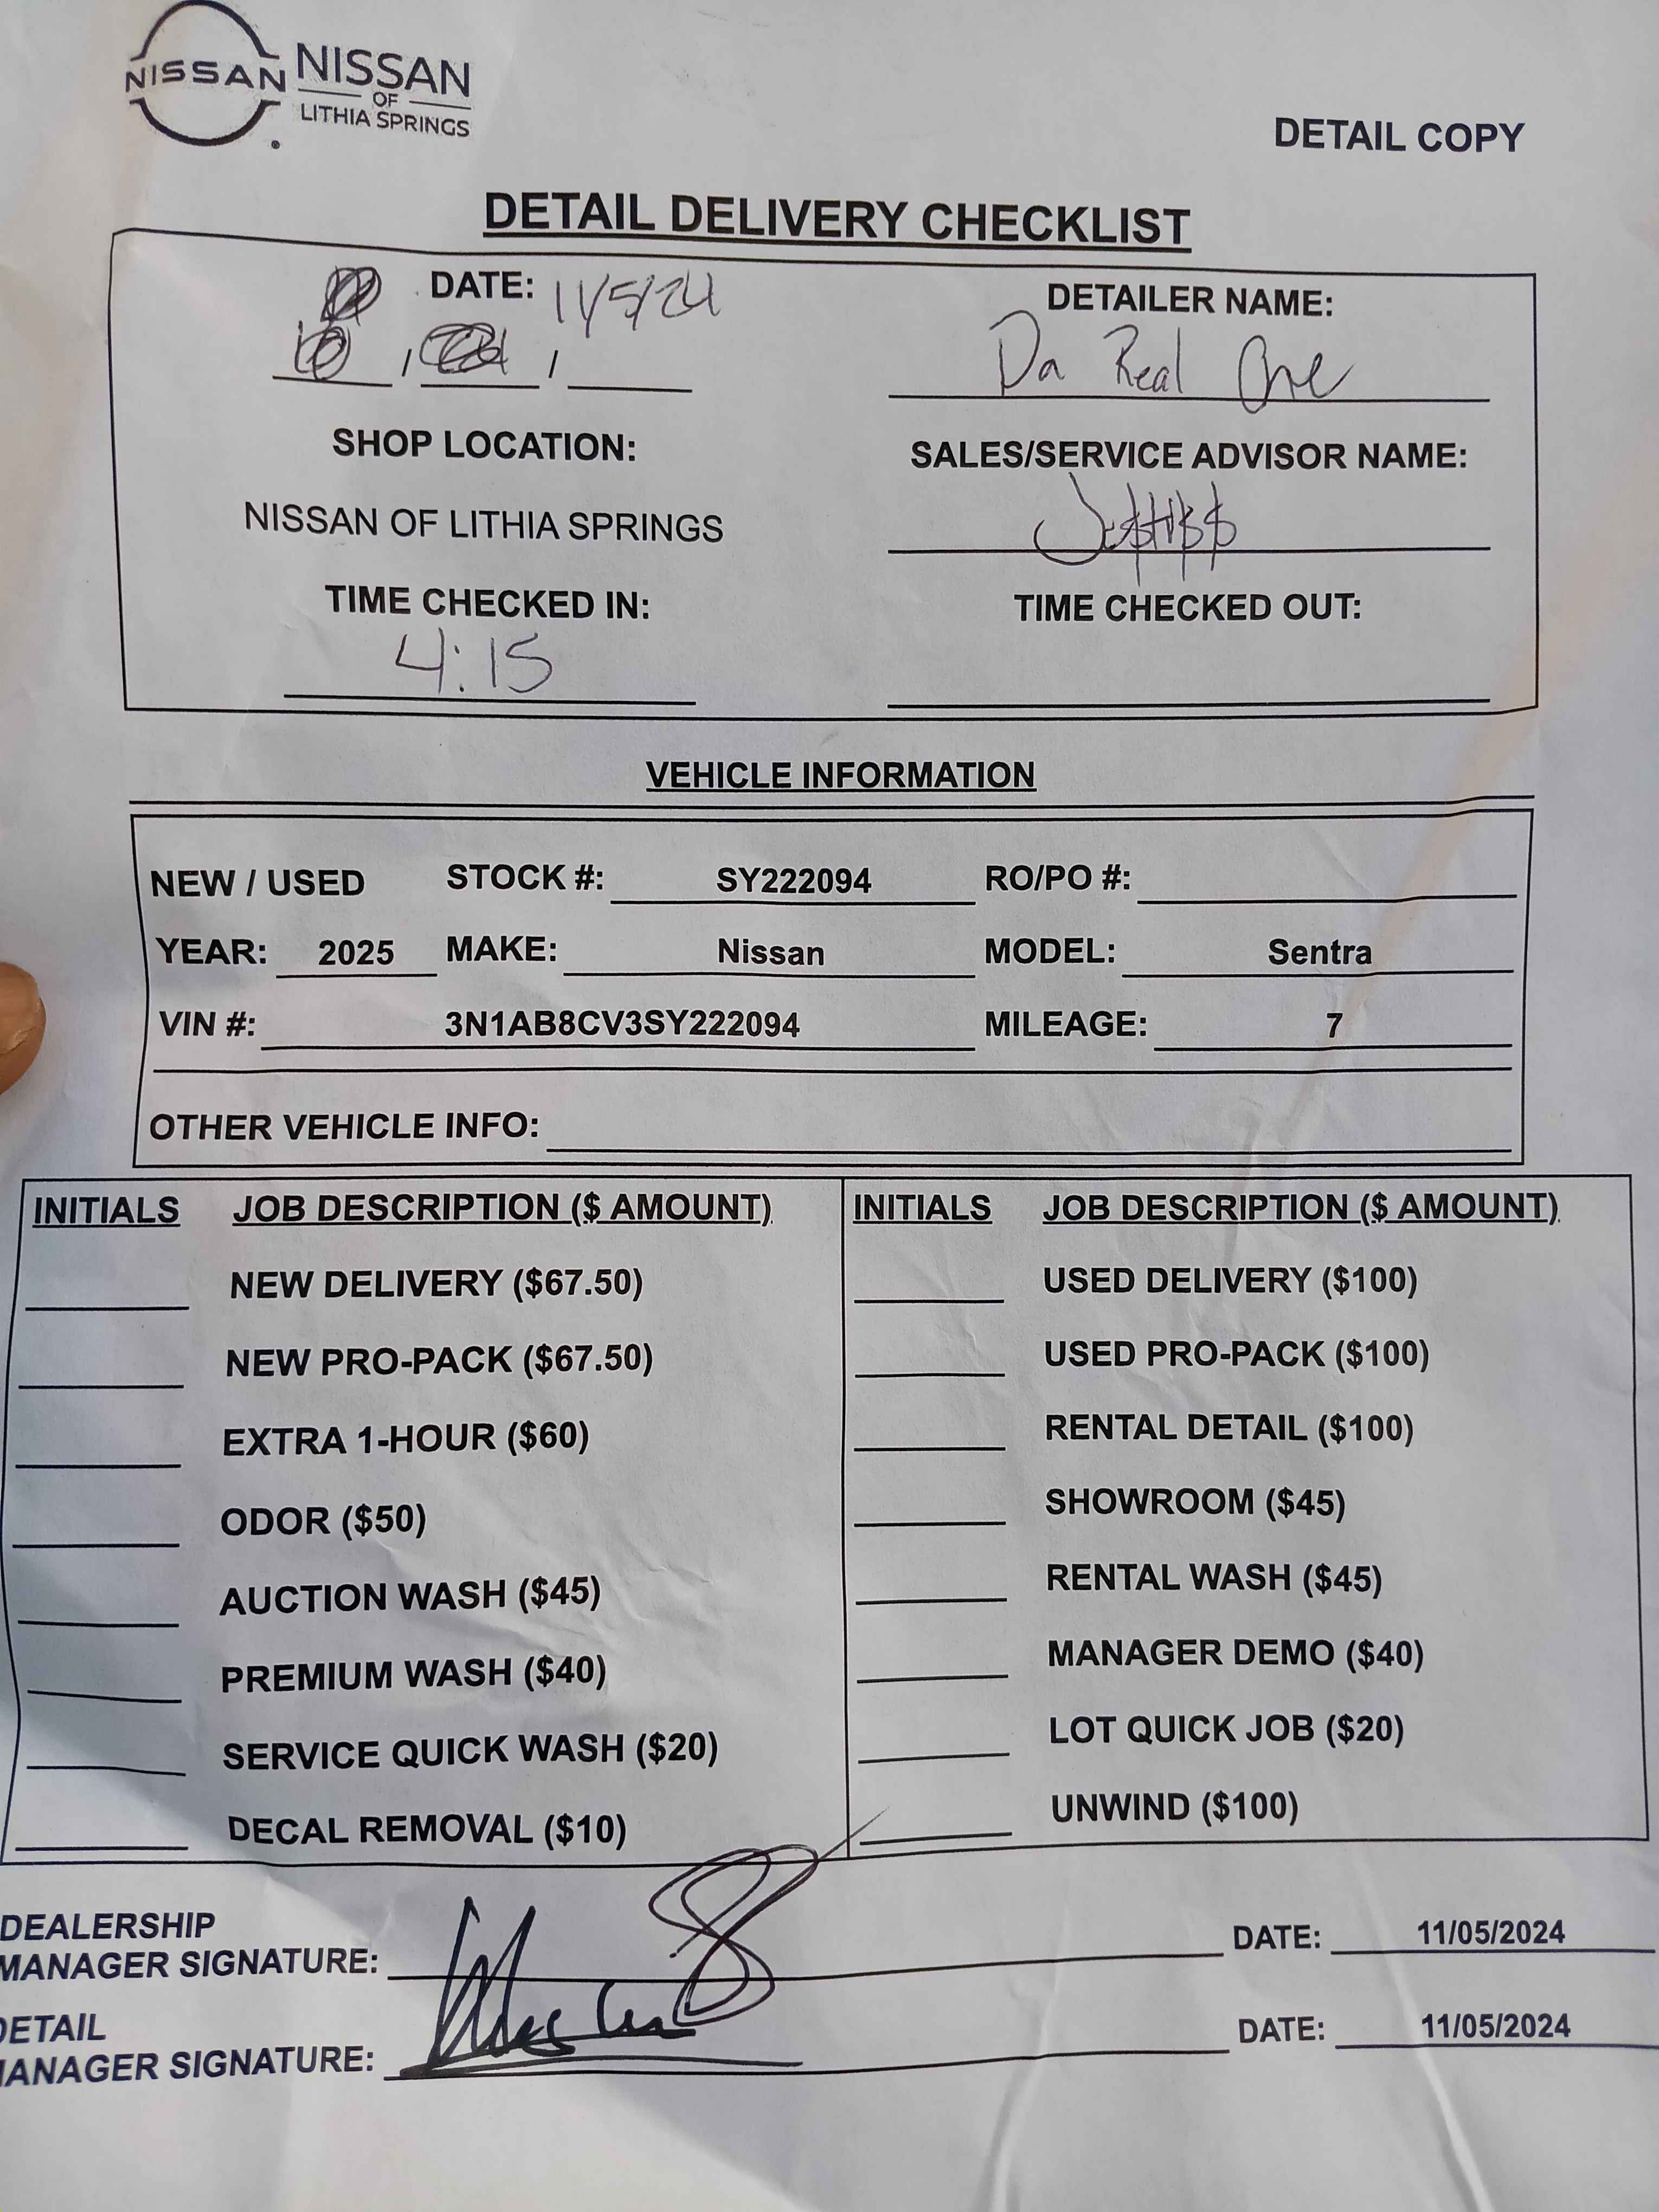 NISSAN NISSAN
OF
LITHIA SPRINGS
DETAIL COPY
DETAIL DELIVERY CHECKLIST
DATE: 11/5/24
/ /
DETAILER NAME:
Da Real One
SHOP LOCATION:
NISSAN OF LITHIA SPRINGS
SALES/SERVICE ADVISOR NAME:
TIME CHECKED IN:
4:15
TIME CHECKED OUT:
VEHICLE INFORMATION
NEW / USED STOCK #: SY222094 RO/PO #:
YEAR: 2025 MAKE: Nissan MODEL: Sentra
VIN #: 3N1AB8CV3SY222094 MILEAGE: 7
OTHER VEHICLE INFO:
INITIALS JOB DESCRIPTION ($ AMOUNT)
NEW DELIVERY ($67.50)
NEW PRO-PACK ($67.50)
EXTRA 1-HOUR ($60)
ODOR ($50)
AUCTION WASH ($45)
PREMIUM WASH ($40)
SERVICE QUICK WASH ($20)
DECAL REMOVAL ($10)
INITIALS JOB DESCRIPTION ($ AMOUNT)
USED DELIVERY ($100)
USED PRO-PACK ($100)
RENTAL DETAIL ($100)
SHOWROOM ($45)
RENTAL WASH ($45)
MANAGER DEMO ($40)
LOT QUICK JOB ($20)
UNWIND ($100)
DEALERSHIP
MANAGER SIGNATURE: DATE: 11/05/2024
DETAIL
MANAGER SIGNATURE: DATE: 11/05/2024